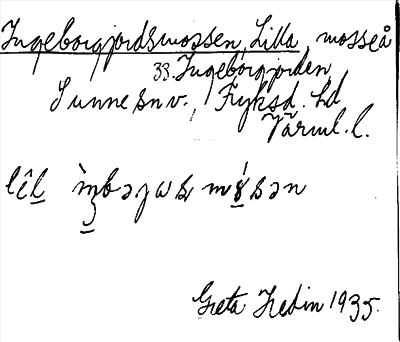 Ingeborgjordsmossen, Lilla, mosseå
33. Ingeborgjorden
Sunne sn v., Fryksd. hd
Värml. l.
Greta Hedin 1935.